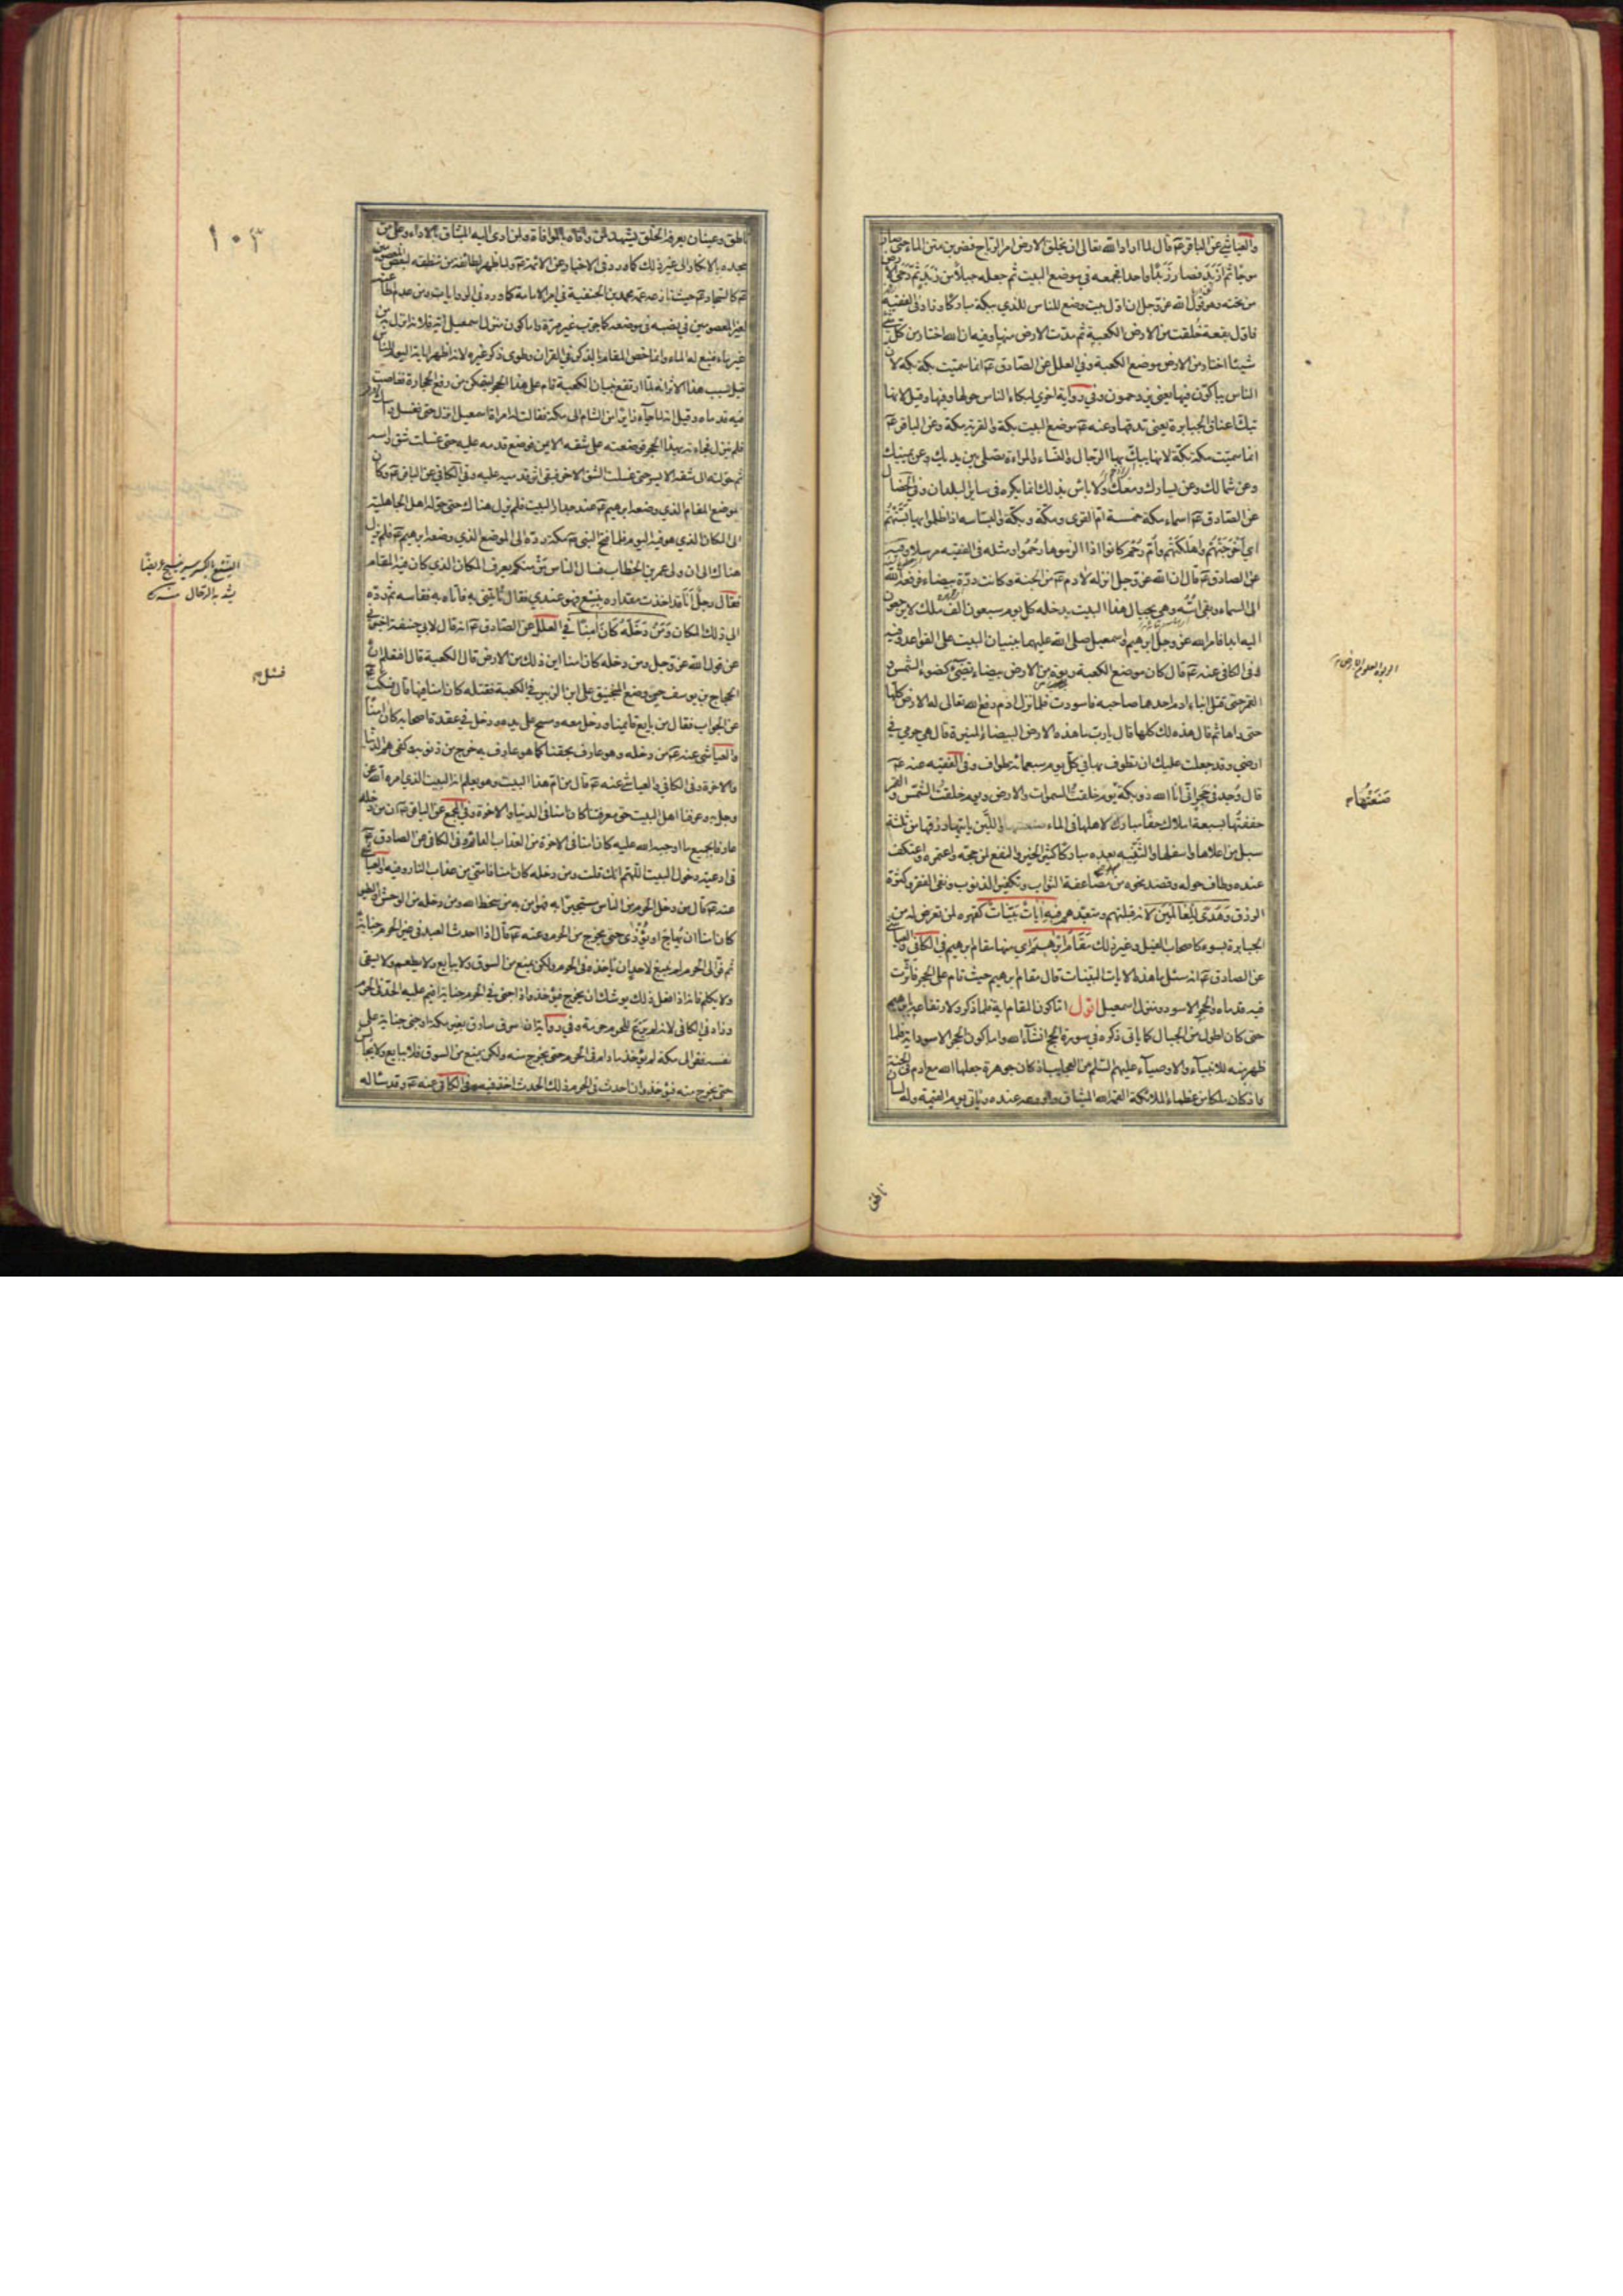 والعياشي عن الباقر عم قال لما اراد الله تعالى ان يخلق الارض امر الرياح فضربن متن الماء حتى صار
موجا ثم ازبد فصار زبدا واحدا فجمعه في موضع البيت ثم جعله جبلا من زبد ثم دحى الارض
من تحته وهو قول الله عز وجل ان اول بيت وضع للناس للذي ببكة مباركا وزاد في الفقيه
فاول بقعة خلقت من الارض الكعبة ثم مدت الارض منها وفيه ان الله اختار من كل شيء
شيئا اختار من الارض موضع الكعبة وفي العلل عن الصادق عم انما سميت بكة بكة لان
الناس يبكون فيها يعني يزدحمون وفي رواية اخرى لبكاء الناس حولها وفيها وقيل لانها
تبك اعناق الجبابرة يعني تدقها وعنه عم موضع البيت بكة والقرية مكة وعن الباقر عم
انما سميت مكة بكة لانها يبك بها الرجال والنساء والمراءة تصلي بين يديك وعن يمينك
وعن شمالك وعن يسارك ومعك ولا باس بذلك انما يكره في ساير البلدان وفي الخصال
عن الصادق عم اسماء مكة خمسة ام القرى ومكة وبكة والبساسة اذا ظلموا بها بستهم
اي اخرجتهم واهلكتهم وام رحم كانوا اذا لزموها رحموا ومثله في الفقيه مرسلا وفيه
عن الصادق عم قال ان الله عز وجل انزله لادم عم من الجنة وكانت درة بيضاء فرفعه الله
الى السماء وبقي اسه وهي بحيال هذا البيت يدخله كل يوم سبعون الف ملك لا يرجعون
اليه ابدا فامر الله عز وجل ابرهيم واسمعيل صلى الله عليهما ببنيان البيت على القواعد وفيه
وفي الكافي عنه عم قال كان موضع الكعبة ربوة من الارض بيضاء تضيء كضوء الشمس و
القمر حتى قتل ابنا ادم احدهما صاحبه فاسودت فلما نزل ادم رفع الله تعالى له الارض كلها
حتى راها ثم قال هذه لك كلها قال يا رب ما هذه الارض البيضاء المنيرة قال هي حرمي في
ارضي وقد جعلت عليك ان تطوف بها في كل يوم سبعمائة طواف وفي الفقيه عنه عم
قال وجد في حجر اني انا الله ذو بكة يوم خلقت السموات والارض ويوم خلقت الشمس والقمر
حففتها بسبعة املاك حفا مبارك لاهلها في الماء واللبن ياتيها رزقها من ثلثة
سبل من اعلاها واسفلها والثنية مباركا كثير الخير والنفع لمن حجه واعتمره واعتكف
عنده وطاف حوله وقصد نحوه من مضاعفة الثواب وتكفير الذنوب ونفي الفقر وكثرة
الرزق وهدى للعالمين لانه قبلتهم ومتعبدهم فيه ايات بينات كقهره لمن تعرض له من
الجبابرة بسوء كاصحاب الفيل وغير ذلك مقام ابرهيم اي منها مقام ابرهيم في الكافي والعياشي
عن الصادق عم انه سئل ما هذه الايات البينات قال مقام ابرهيم حيث قام على الحجر فاثرت
فيه قدماه والحجر الاسود ومنزل اسمعيل اقول اما كون المقام اية فلما ذكر ولارتفاعه بابرهيم
حتى كان اطول من الجبال كما ياتي ذكره في سورة الحج انشاء الله واما كون الحجر الاسود اية فلما
ظهر منه للانبياء والاوصياء عليهم السلم من العجايب اذ كان جوهرة جعلها الله مع ادم في الجنة
واذ كان ملكا من عظماء الملائكة القمه الله الميثاق واودعه عنده وياتي يوم القيمة وله لسان
صنعتها م
ناطق
١٠٣
ناطق وعينان يعرفه الخلق يشهد لمن وافاه بالموافاة ولمن ادى اليه الميثاق بالاداء وعلى من
جحده بالانكار الى غير ذلك كما ورد في الاخبار عن الائمة عم ولما ظهر لطائفة من تنطقه لبعض المعصومين
عم كالسجاد عم حيث نازعه عمه محمد بن الحنفية في امر الامامة كما ورد في الروايات ومن عدم طاعته
لغير المعصومين في نصبه في موضعه كما جرب غير مرة واما كون منزل اسمعيل اية فلانه انزل به من
غير ماء فنبع له الماء وانما خص المقام بالذكر في القران وطوى ذكر غيره لانه اظهر اياته اليوم للناس
قيل سبب هذا الاثر انه لما ارتفع بنيان الكعبة قام على هذا الحجر ليتمكن من رفع الحجارة فغاصت
فيه قدماه وقيل انه لما جاء زائرا من الشام الى مكة فقالت له امراة اسمعيل انزل حتى نغسل راسك
فلم ينزل فجاءته بهذا الحجر فوضعته على شقه الايمن فوضع قدمه عليه حتى غسلت شق راسه
ثم حولته الى شقه الايسر حتى غسلت الشق الاخر فبقي اثر قدميه عليه وفي الكافي عن الباقر عم وكان
موضع المقام الذي وضعه ابرهيم عم عند جدار البيت فلم يزل هناك حتى حوله اهل الجاهلية
الى المكان الذي هو فيه اليوم فلما فتح النبي عم مكة رده الى الموضع الذي وضعه ابرهيم عم فلم يزل
هناك الى ان ولى عمر بن الخطاب فسال الناس من منكم يعرف المكان الذي كان فيه المقام
فقال رجل انا قد اخذت مقداره بنسع فهو عندي فقال تاتيني به فاتاه به فقاسه ثم رده
الى ذلك المكان ومن دخله كان امنا في العلل عن الصادق عم انه قال لابي حنيفة اخبرني
عن قول الله عز وجل ومن دخله كان امنا اين ذلك من الارض قال الكعبة قال افتعلم ان
الحجاج بن يوسف حين وضع المنجنيق على ابن الزبير في الكعبة فقتله كان امنا فيها قال فسكت
عن الجواب فقال من بايع قايمنا ودخل معه ومسح على يده ودخل في عقد اصحابه كان امنا
والعياشي عنه عم من دخله وهو عارف بحقنا كما هو عارف به خرج من ذنوبه وكفي هم الدنيا
والاخرة وفي الكافي والعياشي عنه عم قال من ام هذا البيت وهو يعلم انه البيت الذي امره الله عز
وجل به وعرفنا اهل البيت حق معرفتنا كان امنا في الدنيا والاخرة وفي المجمع عن الباقر عم ان من دخله
عارفا بجميع ما اوجبه الله عليه كان امنا في الاخرة من العذاب الدائم وفي الكافي عن الصادق عم
في ادعية دخول البيت اللهم انك قلت ومن دخله كان امنا فامني من عذاب النار وفيه والعياشي
عنه عم قال من دخل الحرم من الناس مستجيرا به فهو امن به من سخط الله ومن دخله من الوحش والطير
كان امنا ان يهاج او يؤذى حتى يخرج من الحرم وعنه عم قال اذا احدث العبد في غير الحرم جناية
ثم فر الى الحرم لم ينبغ لاحد ان ياخذه في الحرم ولكن يمنع من السوق ولا يبايع ولا يطعم ولا يسقى
ولا يكلم فانه اذا فعل ذلك يوشك ان يخرج فيؤخذ واذا جنى في الحرم جناية اقيم عليه الحد في الحرم
وزاد في الكافي لانه لم يرع للحرم حرمة وفي رواية ان سرق سارق بغير مكة او جنى جناية على
نفسه ففر الى مكة لم يؤخذ ما دام في الحرم حتى يخرج منه ولكن يمنع من السوق فلا يبايع ولا يجالس
حتى يخرج منه فيؤخذ وان احدث في الحرم ذلك الحدث اخذ فيه وفي الكافي عنه عم وقد ساله
يشد به الرحال منه
فسئل م